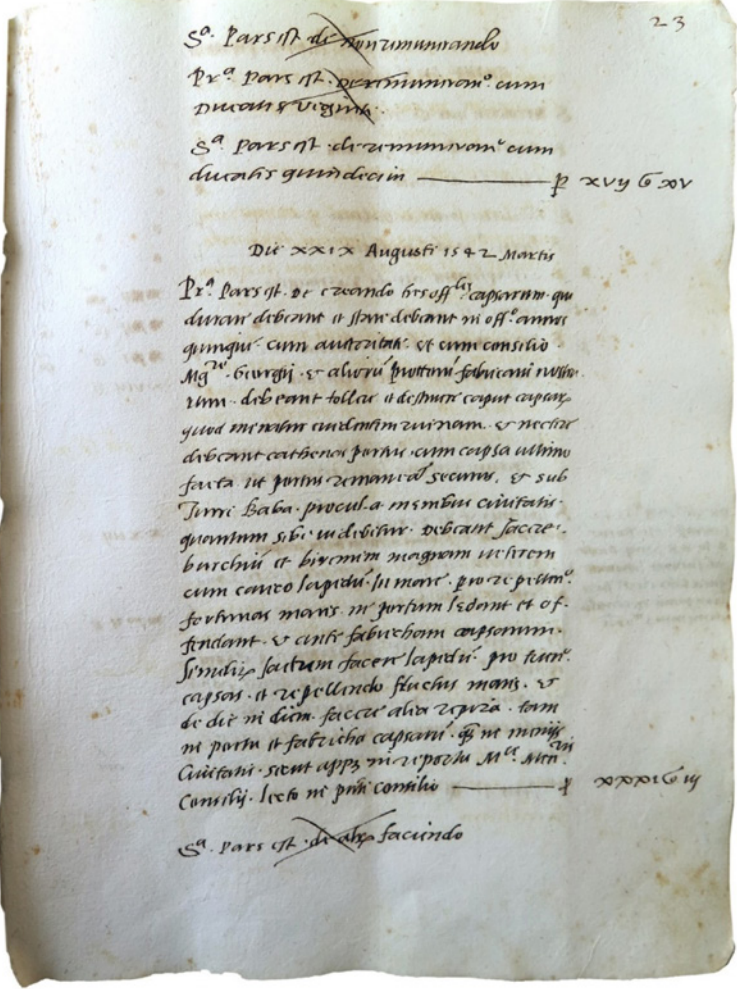 23
Sª. Pars est de non remunerando
Prª Pars est. De remuneranº. cum
Ducatis viginti.
Sª. Pars est. de remuneranº cum
ducatis quindecim ——— P XVIJ G XV
Die XXIX Augusti 1542 Martis
Prª. Pars est. De creando tres offles capsarum. qui
durare debeant et stare debeant in offº. annos
quinque. cum auctoritate. et cum consilio
Mgci. Georgij. et aliorū protorū fabricarū nostra-
rum. debeant tollere et destruere caput capsae
quod minatur evidentem ruinam. et nectere
debeant cathenas portus. cum capsa ultimo
facta ut portus remaneat securus. et sub
Turri Baba. procul a menibus civitatis.
quantum sibi videbitur. Debeant facere.
burchiū et biremem magnam veterem
cum carico lapidū. in mare. pro repellenº.
fortunas maris. ne portum ledant et of-
fendant. et ante fabricham capsarum.
Similiter jactum facere lapidū. pro
capsas. et repellendo fluctus maris. et
de die in diem. facere alia. tam
in portu et fabricha capsarū. in menijs
Civitatis. sicut appʒ in reportu Mci. Min.ris
Consilij. lecto in pnti consilio ——— P XXXI G IIJ
Sª. Pars est. de alr faciendo